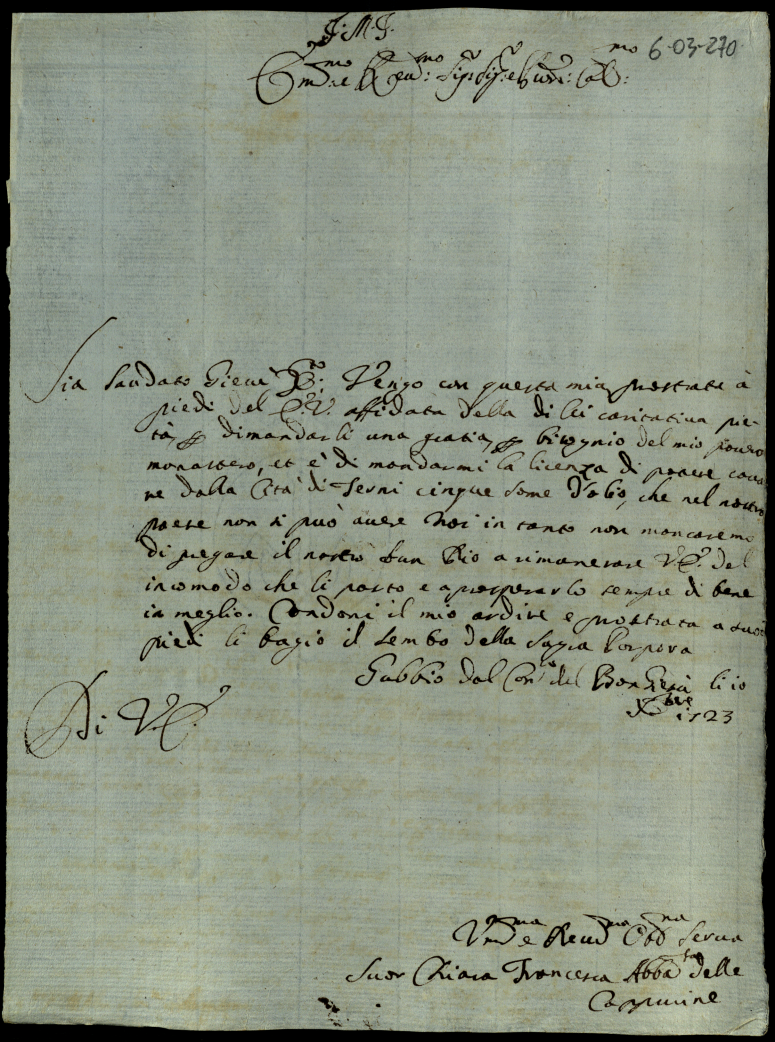 J: M: J:
6-03-270
Em:mo e Reu:mo Sig: Sig:e
Sia laudato Giesù Xsto: Vengo con questa mia prostrata à
piedi del E: V: affidata della di lei caritativa pie-
tà, p dimandarli una gratia, p bisognio del mio povero
monastero, et è di mandarmi la licenza di potere cava
re dalla Cità di Terni cinque some d'olio, che nel nostro
paese non si può avere Noi in tanto non mancaremo
di pregare il nostro bun Dio a rimunerare V.E. del
incomodo che li porto e a prosperarlo sempre di bene
in meglio. Condoni il mio ardire e prostrata a suoi
piedi li bagio il lembo della sagra Porpora
Gubbio dal Con:to del Bon Giesù li 10
Xbre 1723
Di V.E.
Vm:ma e Reud:ma Obb:ma Serva
Suor Chiara Francesca Abba:ssa delle
Cappucine